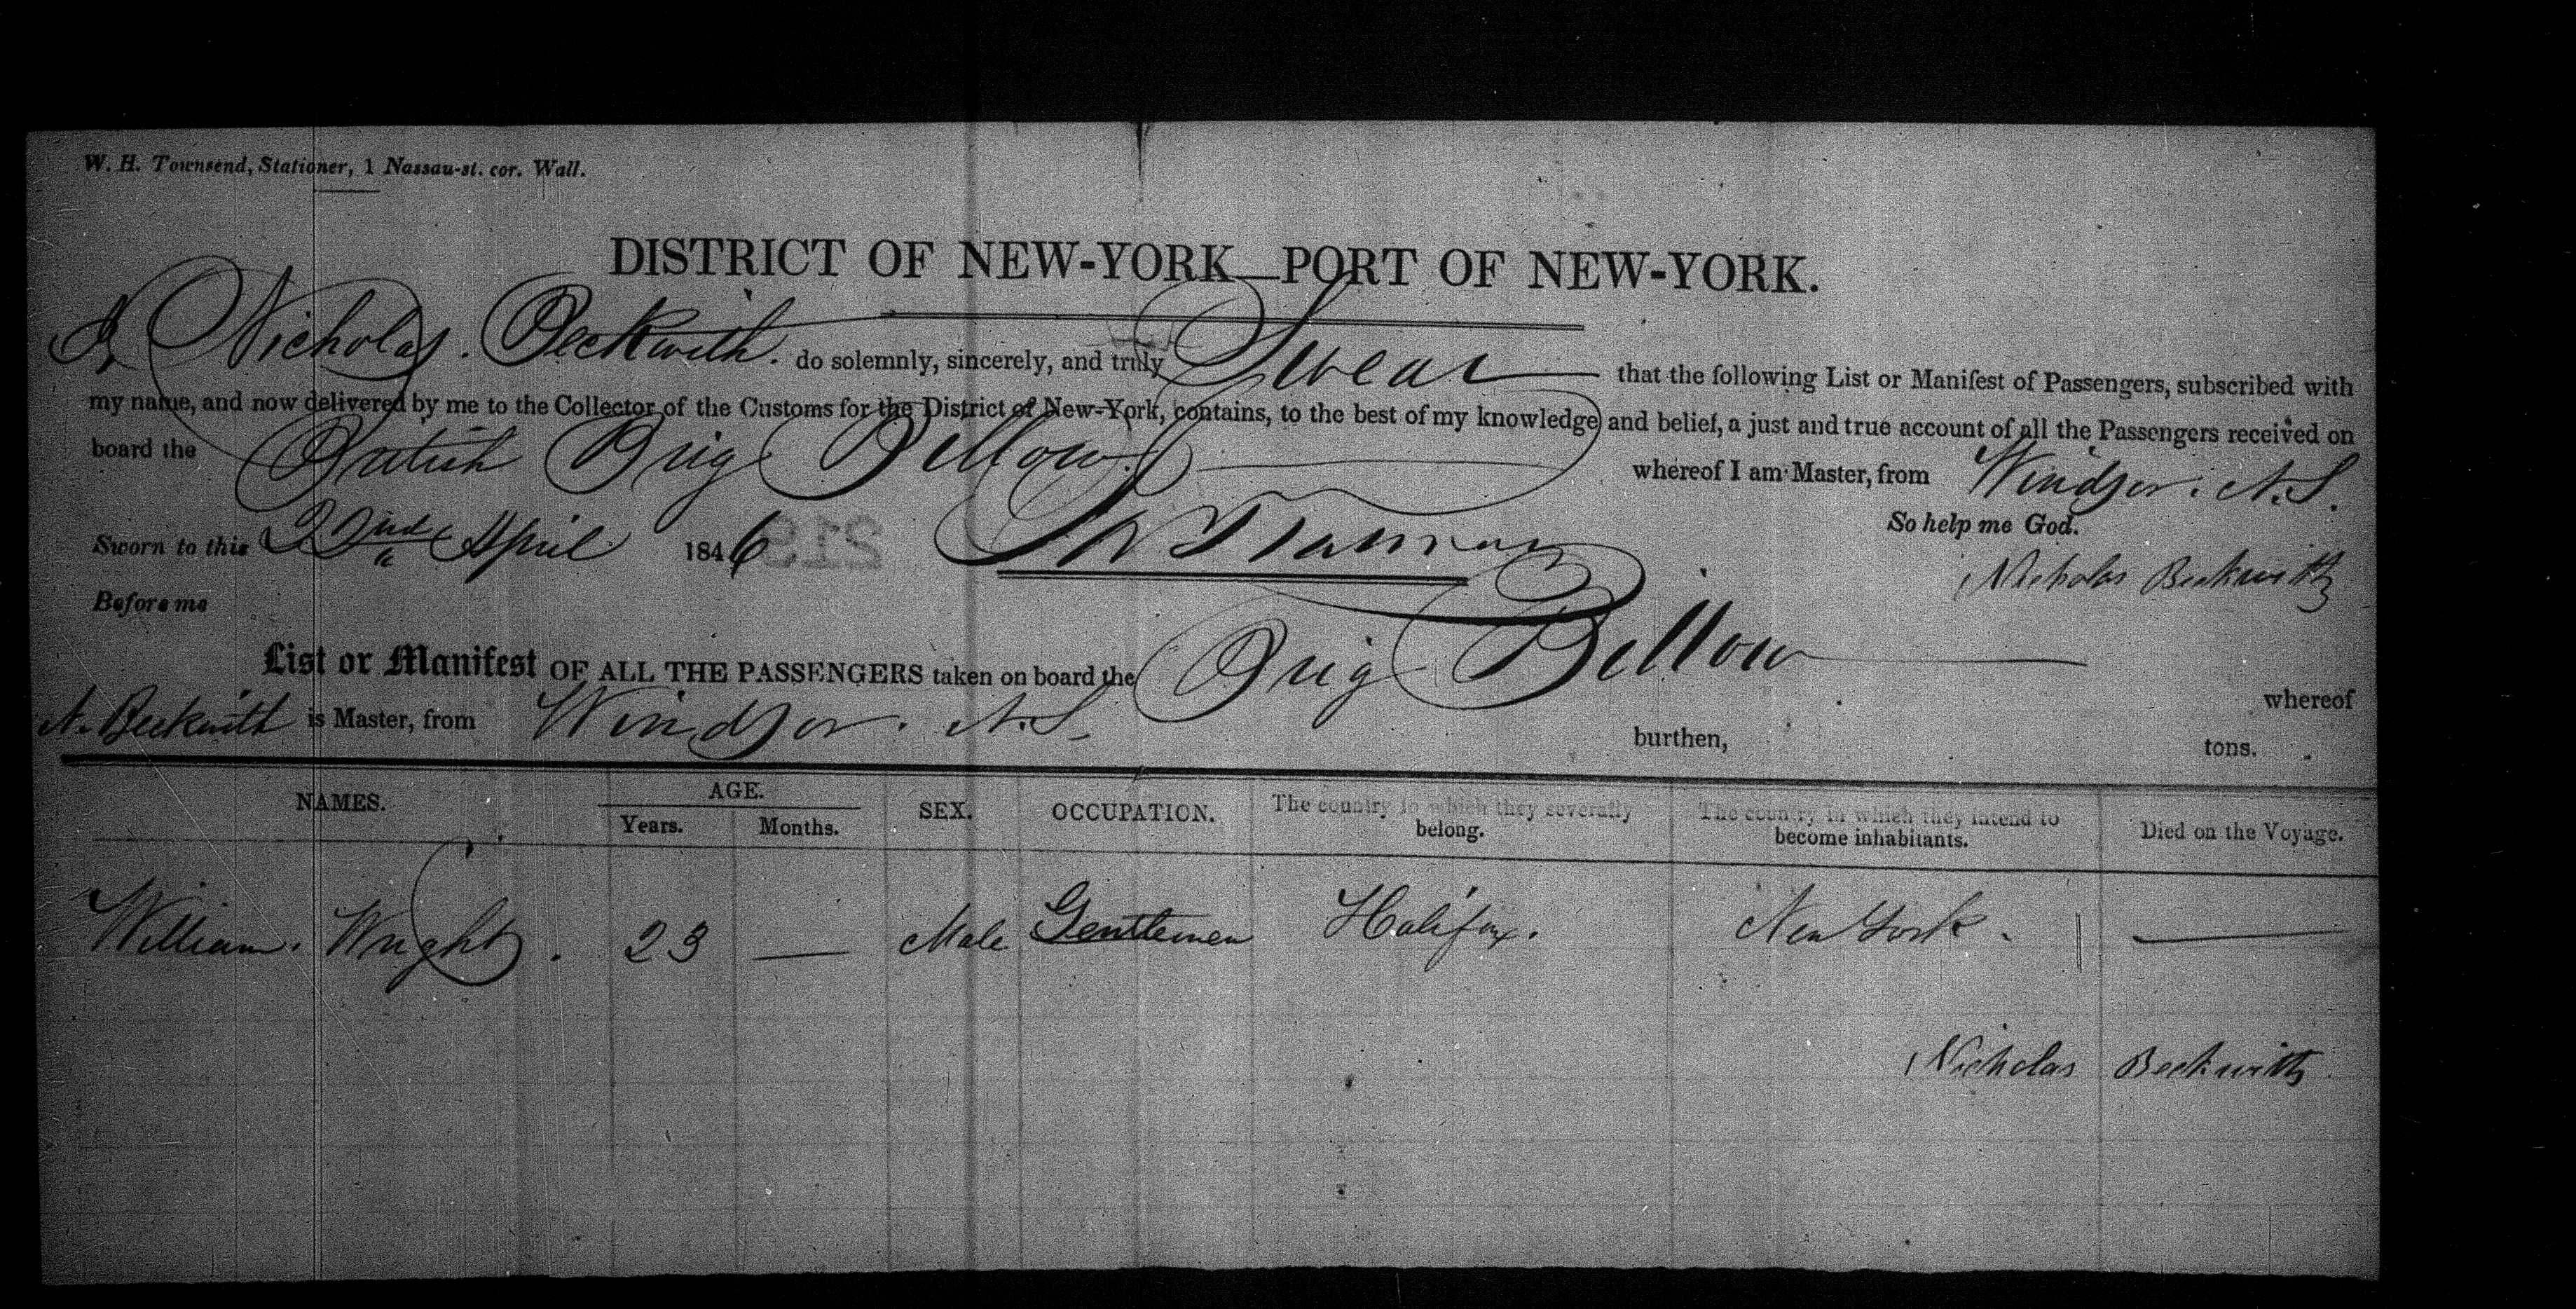 W. H. Townsend, Stationer, 1 Nassau-st. cor. Wall.
DISTRICT OF NEW-YORK—PORT OF NEW-YORK.
I, Nicholas. Beckwith. do solemnly, sincerely, and truly Swear that the following List or Manifest of Passengers, subscribed with
my name, and now delivered by me to the Collector of the Customs for the District of New-York, contains, to the best of my knowledge and belief, a just and true account of all the Passengers received on
board the British Brig Bellow. whereof I am Master, from Windsor. N.S.
So help me God.
Sworn to this 22nd April 1846 213
Nicholas Beckwith
Before me
List or Manifest OF ALL THE PASSENGERS taken on board the Brig Bellow whereof
N. Beckwith is Master, from Windsor. N.S. burthen, tons.
NAMES. AGE. SEX. OCCUPATION. The country to which they severally belong. The country in which they intend to become inhabitants. Died on the Voyage.
Years. Months.
William. Wright. 23 — Male Gentlemen Halifax. New York. —
Nicholas Beckwith